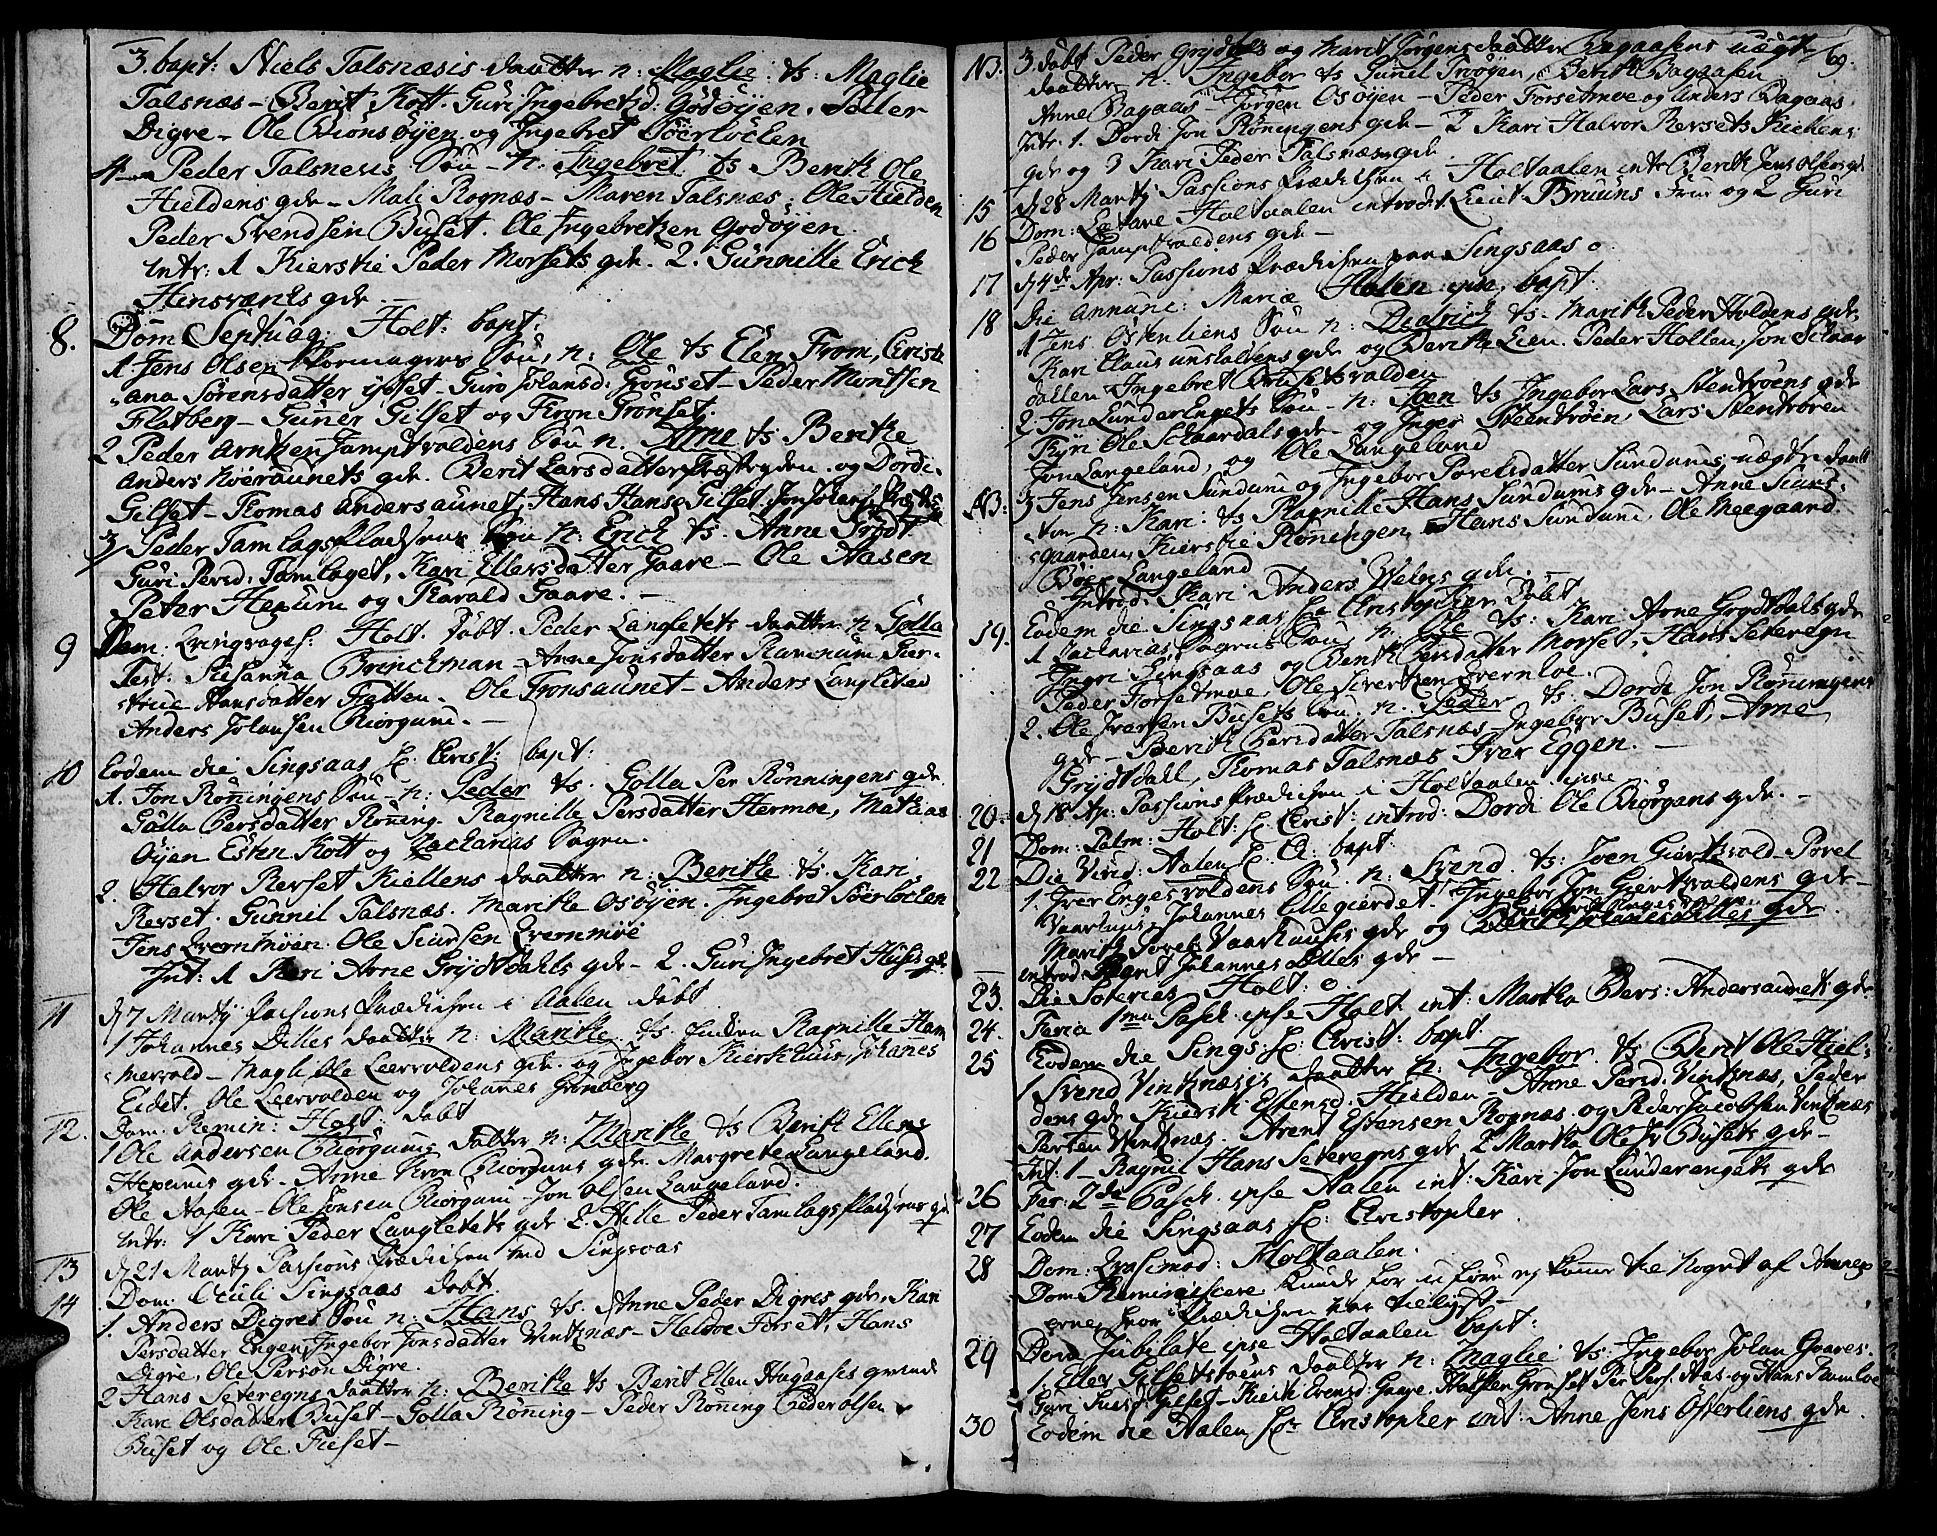 3. bapt: Niels Talsnæsis daatter n: Maglie. ts: Maglie
Talsnæs – Berit Kott. Guri Ingebretsd: Godøyen. Peder
Digre – Ole Biønsøyen og Ingebret Sørløcken
4 – Peder Talsnesis Søn – n: Ingebret ts Berith Ole
Hieldens qde – Mali Rognæs – Maren Talsnæs; Ole Hielden
Peder Svendsen Buset. Ole Ingebretsen Godøyen.
Intr: 1 Kierstie Peder Morsets qde. 2. Gunnille Erich
Hensvænets qde. –
8. Dom Septuag: Holt: bapt:
1. Jens Olsen Skormagers Søn, n: Ole ts Elen From, Christi
ana Sørensdatter Gilset – Guro Johansd: Grønset – Peder Montsen
Flatberg – Gunner Gilset og Tron Grønset.
2 Peder Arntsen Jamptvoldens Søn n. Arne ts Berithe
Anders Køeraunets qde. Berit Larsdatter og Dordi
Gilset – Thomas Andersaunet, Hans Hans: Gilset. Jon Johans:
3 Peder Tamlagspladsens Søn n: Erich ts. Anne Grødt
Guri Persd: Tamlaget, Kari Ellersdatter Gaare – Ole Aasen
Peter Hexum og Harald Gaare. –
9 Dom: Qvinqvages: Holt. Døbt. Peder Langletets daatter n Golla
Test: Susanna Brinckman – Anne Jonsdatter Ramnum, Kier-
stine Hansdatter Fatten. Ole Tronsaunet – Anders Langletet
Anders Johansen Biørgum. –
10 Eodem die Singsaas Hr. Christ: bapt:
1. Jon Røningens Søn – n: Peder ts. Golla Per Rønningens qde
Golla Persdatter Røning – Ragnille Persdatter Hermoe, Mathias
Øyen Esten Kott og Zacharias Sagen.
2. Halvor Revset Kiellens daatter n: Berithe ts. Kari
Revset. Gunnil Talsnæs. Marithe Osøyen. Ingebret Sørløcken
Jens Qvernmoen: Ole Siursen Qvernmoe
Int: 1 Kari Arne Grydtdahls qde – 2. Guri Ingebret Huses qde
11 d 7 Martij Passions Prædichen i Aalen døbt
1 Johannes Dilles daatter n: Marithe. ts. Ragnille Ham
mervold – Magli Ole Leervoldens qde. og Ingebor Kierckhuus, Johannes
Eidet. Ole Leervolden og Johannes Grønberg
12. Dom. Remin: Holt: døbt
1 Ole Andersen Biørgums daatter n: Marithe ts Berith Ellens
Hexums qde – Anne Tron Biørgums qde. Margrete Langeland.
Ole Aasen – Ole Jonsen Biørgum – Jon Olsen Langeland.
Intr: 1 Kari Peder Langletets qde 2. Hille Peder Tamlagspladsens qde
13 d 21 Martij Passions Prædichen ved Singsaas
14 Dom. Oculi Singsaas døbt
1. Anders Digres Søn n: Hans ts. Anne Peder Digres qde, Kari
Persdatter Engen, Ingebor Jonsdatter Vintznæs – Haldor Forset, Hans
Digre, Ole Person Digre.
2 Hans Seteregns daatter n: Berithe ts Berit Ellen Hugaases
Kari Olsdatter Buset – Golla Røning – Peder Røning Peder Olsen
Buset og Ole Fieset –
69.
NB: 3. døbt Peder Grydtdals og Marit Jørgensdaatter Bagaasens uægt
daatter n. Ingebor ts Gunil Troøyen, Berith Bagaasen
Anne Bagaas Jørgen Osøyen – Peder Forsetmoe og Anders Bagaas.
Intr. 1. Dordi Jon Røningens qde – 2 Kari Halvor Revsets Kiellens
qde og 3 Kari Peder Talsnæs qde.
15 d 28 Martij Passions Prædichen i Holtaalen intr Berith Jens Olbergs qde
16 Dom: Lætare Holtaalen introd 1. Lieut Bruuns Frue og 2 Guri
Peder Jamptvoldens qde –
17 d 4de Apr. Passions Prædichen paa Singsaas o.
18 Die Annunc: Mariæ Holen ipse, bapt.
1 Jens Østenliens Søn n: Diedrich ts. Marith Peder Holdens qde
Kari Claus Unsholdens qde og Berithe Lien. Peder Holden, Jon
dallen Ingebret Brusetsvolden
2. Jon Lunder Engets Søn – n: Joen ts Ingebor Lars Stentrøens qde
Kyri Ole Schaardals qde – og Inger Steentrøen, Lars Stentrøen
Jon Langeland, og Ole Langeland
NB: 3 Jens Jensen Sundum og Ingebor Povelsdatter Sundums uægte daat
ter n: Kari: ts Ragnille Hans Sundums qde – Anne Siurs-
gaarden, Kierstie Røningen, Hans Sundum, Ole Meegaard.
Boe Langeland
Introd: Kari Anders Wolds qde. –
19. Eodem die Singsaas Hr Christopher Døbt
1 Zacharias Sagens Søn, n. Ole ts: Kari Arne Grydtdals qde
Ingri Singsaas og Berith Persdatter Morset, Hans Seteregn
Peder Forsetmoe, Ole Sivertsen Qvernloe.
2. Ole Ivarsen Busets Søn n. Peder ts. Dordi Jon Røningens
qde – Berith Persdatter Talsnæs – Ingebor Buset, Arne
Grydtdall, Thomas Talsnæs Iver Eggen. –
20. d 18 Ap: Passions Prædichen i Holtaalen ipse
21 Dom: Palm: Holt: Hr. Christ: introd: Dordi Ole Biørgans qde. –
22 Die Virid: Aalen Hr: C: bapt:
1. Iver Engesvoldens Søn. n: Svend ts: Joen Giertsvold – Povel
Vaarhuus, Johannes Ellegierdet. Ingebor Jon Giertsvoldens qde –
Marith Povel Vaarhuuses qde og
introd: Sigrit Johannes Dilles qde –
23. Die Soteries Holt: o.
24. Feria 1ma Pasch. ipse Holt. int: Martha Pers: Andersaunets qde
25 Eodem die Sings: Hr: Christ: bapt:
1 Svend Vintznæses daatter n: Ingebor. ts Berit Ole Hiel-
dens qde Kiersti Estensd. Hielden – Anne Persd. Vintznæs, Peder
Persen Vintznæs. Arent Estensen Rognæs. og Peder Jacobsen Vintznæs
Int: 1 – Ragnil Hans Seteregns qde, 2 Martha Ole Iv Busets qde –
26 Fer: 2da Pasch. ipse Aalen int: Kari Jon Lunderengets qde
27 Eodem die Singsaas Hr: Christopher.
28 Dom: Qvasimod: Holtaalen.
Dom Reminiscere kunde for u-føre ey komme til noget af Annexerne,
hvor Prædichen var tielyst –
29 Dom Jubilate ipse Holtaalen bapt:
1. Eller Gilsetstøens daatter n: Maglie ts: Ingebor Johan Gaares.
Guri Gilset – Kiersti Evensd: Gaare. Halsten Grønset Per Pers: Aas – og Hans Ramloe
30 Eodem die Aalen, Hr Christopher int: Anne Jens Østerliens qde